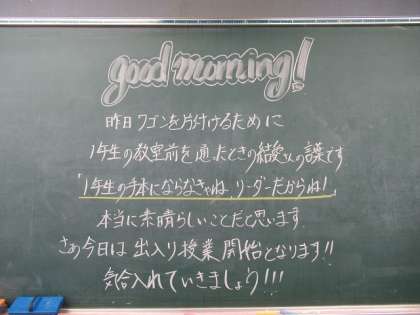 good morning!
昨日ワゴンを片付けるために
1年生の教室前を通ったときの結愛さんの言葉です
「1年生の手本にならなきゃね、リーダーだからね!」
本当に素晴らしいことだと思います
さあ今日は出入り授業開始となります!!
気合入れていきましょう!!!